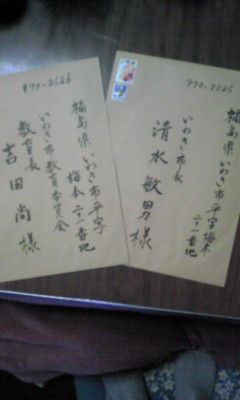 970-8686
福島県いわき市平字梅本二一番地
いわき市長
清水敏男様
970-8686
福島県いわき市平字
梅本二一番地
いわき市教育委員会
教育長
吉田尚様